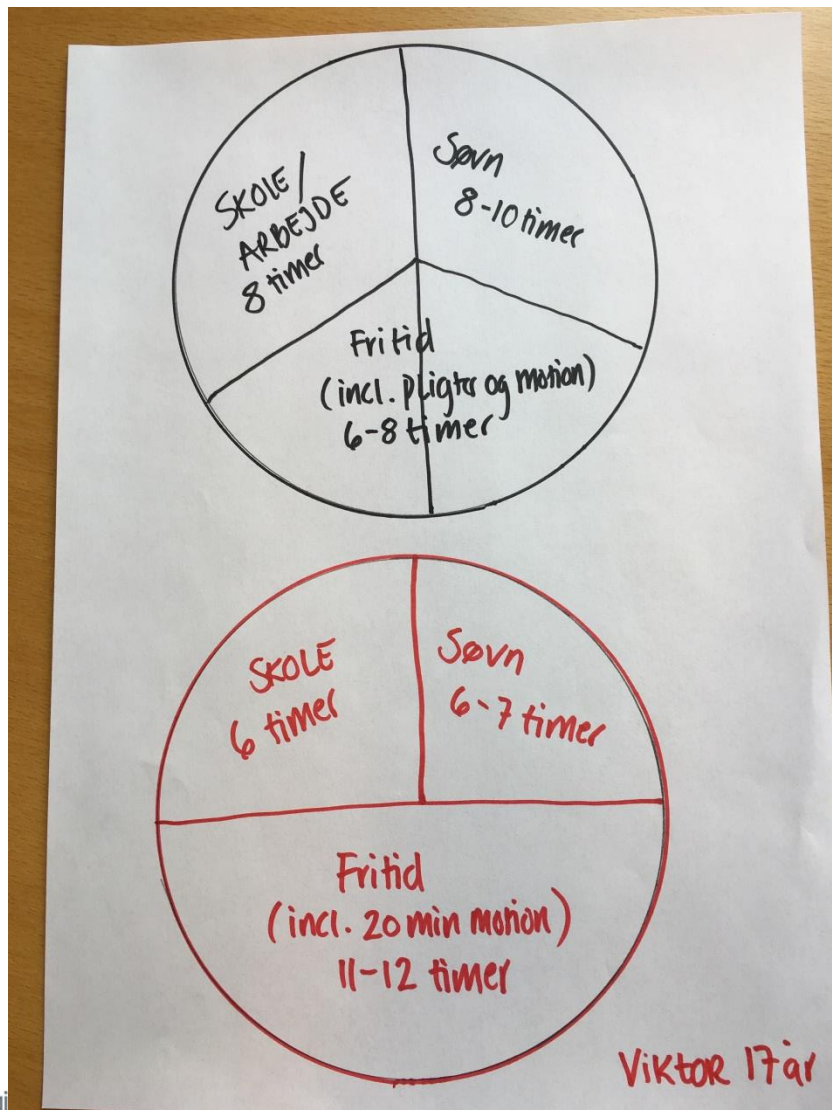 SKOLE/
ARBEJDE
8 timer
Søvn
8-10 timer
Fritid
(incl. pligter og motion)
6-8 timer
SKOLE
6 timer
Søvn
6-7 timer
Fritid
(incl. 20 min motion)
11-12 timer
Viktor 17 år